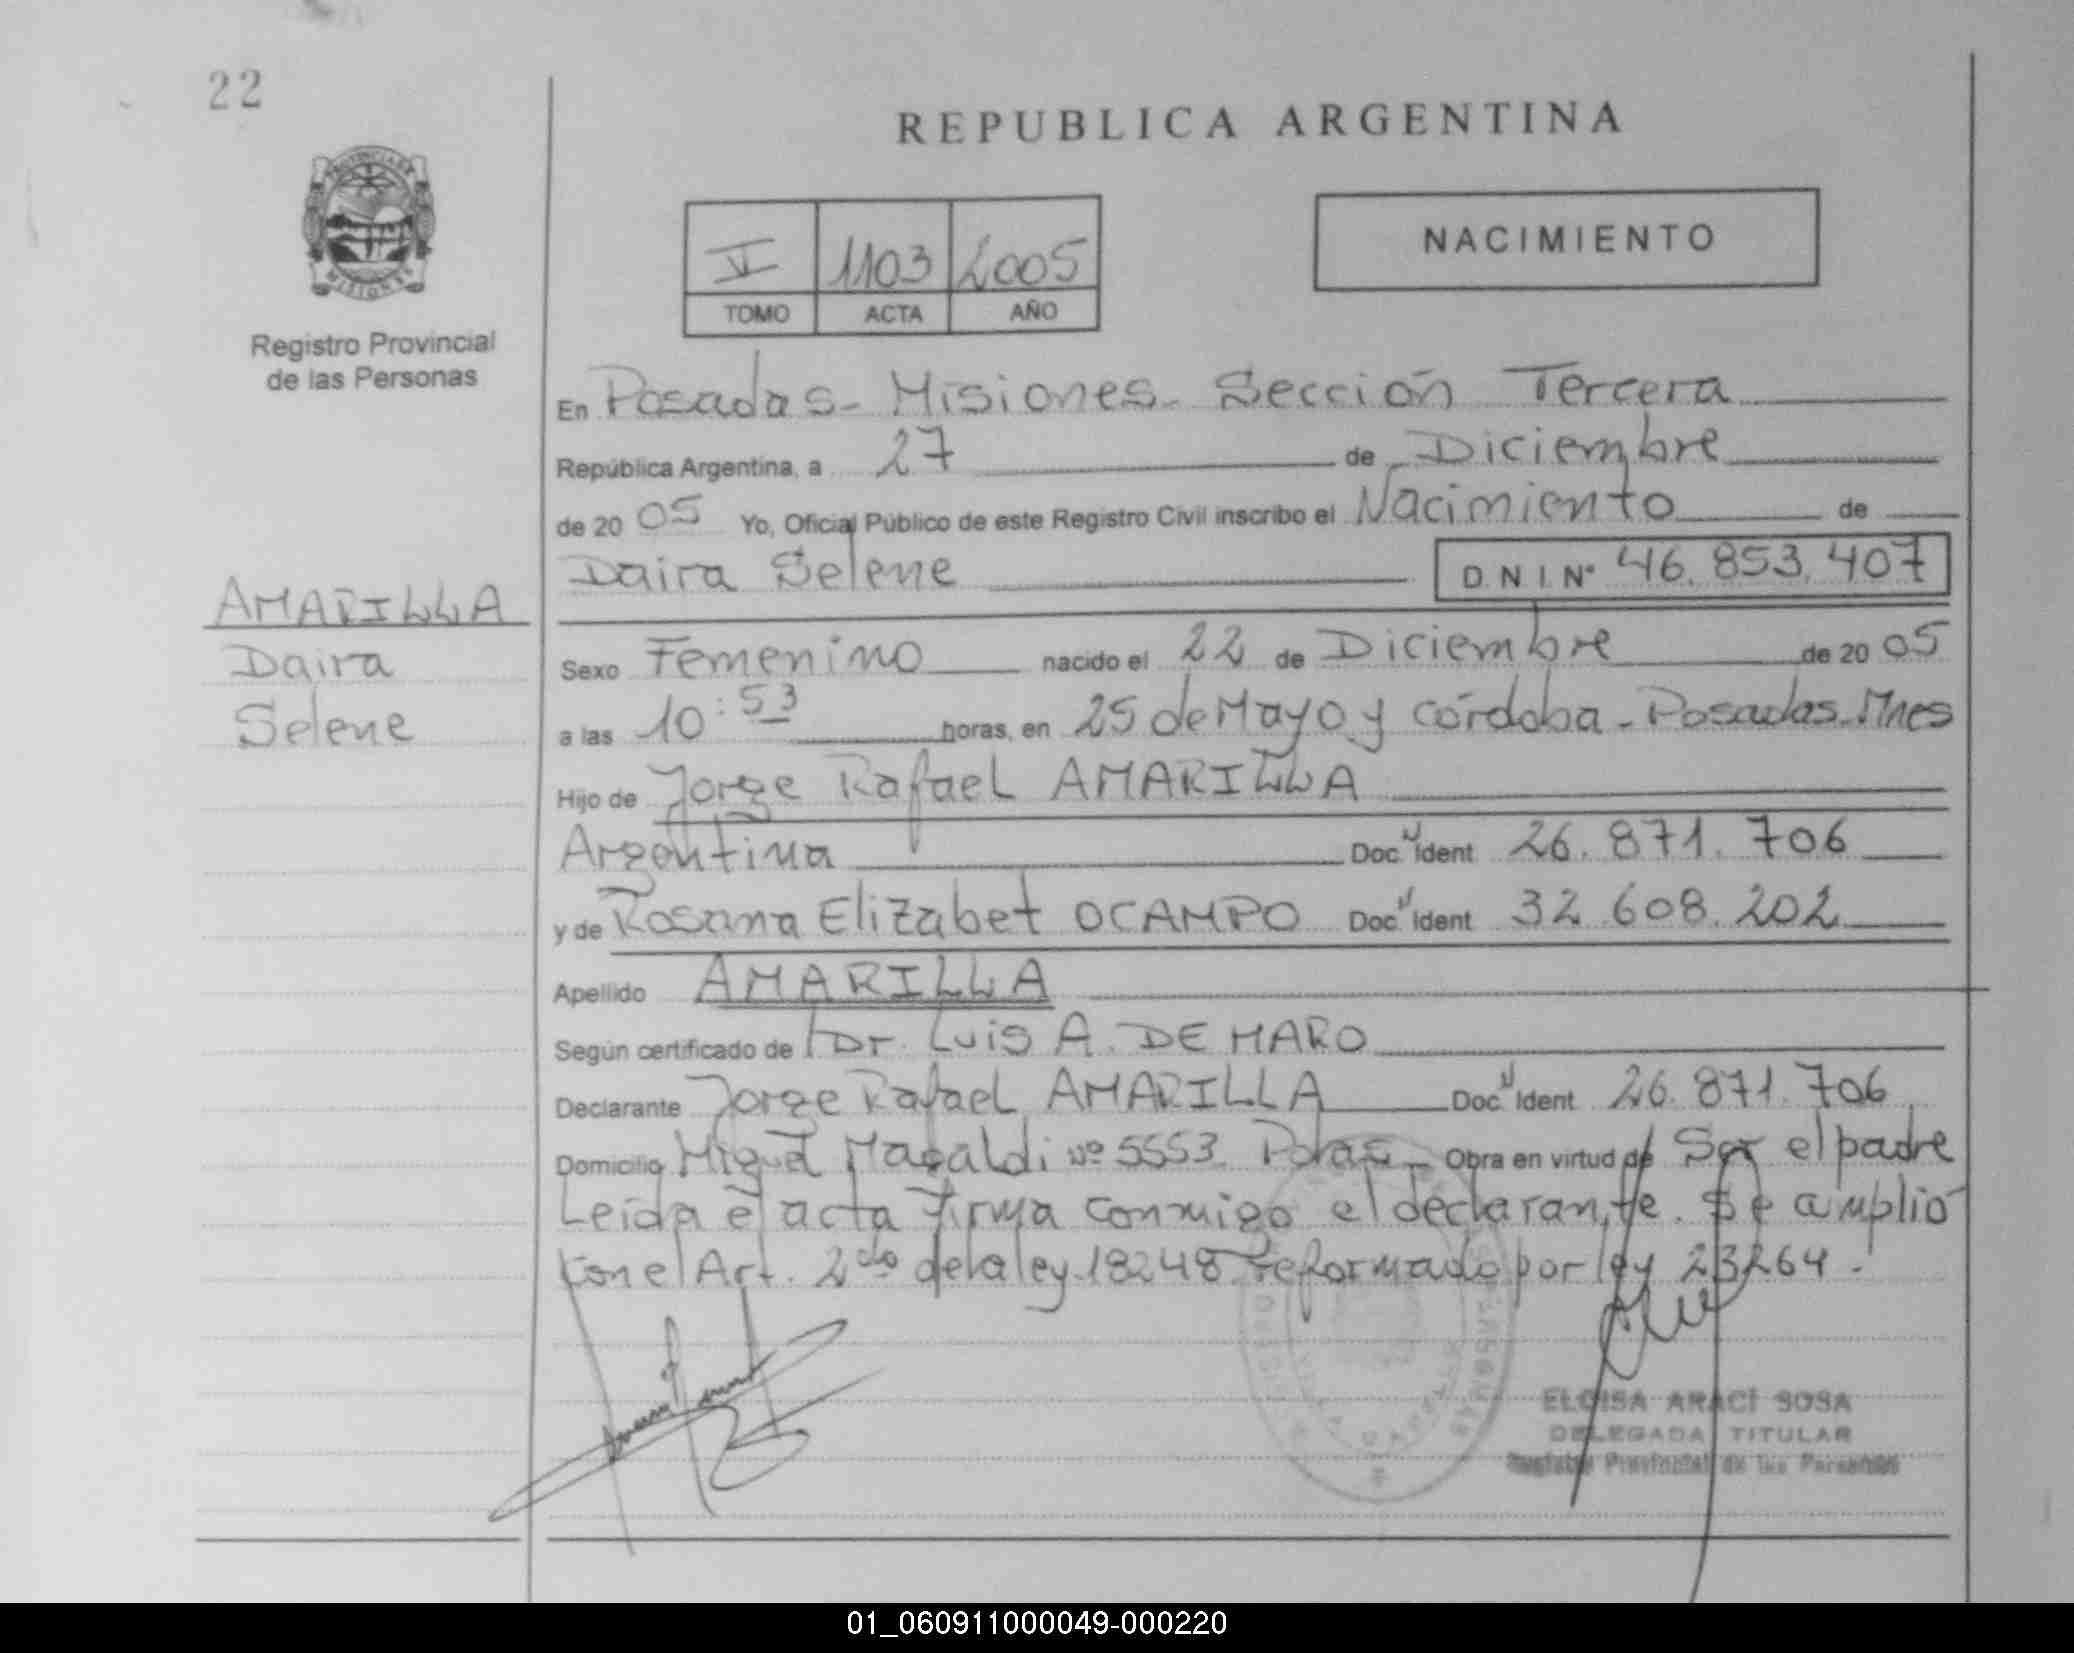 22
REPUBLICA ARGENTINA
PROVINCIA DE
MISIONES
Registro Provincial
de las Personas
V 1103 2005
TOMO ACTA AÑO
NACIMIENTO
En Posadas - Misiones - Sección Tercera
República Argentina, a 27 de Diciembre
de 20 05 Yo, Oficial Público de este Registro Civil inscribo el Nacimiento de
Daira Selene D.N.I.Nº 46.853.407
AMARILLA
Daira
Selene
Sexo Femenino nacido el 22 de Diciembre de 20 05
a las 10:53 horas, en 25 de Mayo y Córdoba - Posadas - Mnes
Hijo de Jorge Rafael AMARILLA
Argentina Doc. Ident 26.871.706
y de Rosana Elizabet OCAMPO Doc. Ident 32.608.202
Apellido AMARILLA
Según certificado de Dr. Luis A. DE MARO
Declarante Jorge Rafael AMARILLA Doc. Ident 26.871.706
Domicilio Miguel Magaldi Nº 5553 Pdas - Obra en virtud de Ser el padre
Leída el acta firma conmigo el declarante. Se amplió
con el Art. 2do de la ley 18248 reformado por ley 23264.
ELOISA ARACI SOSA
DELEGADA TITULAR
Registro Provincial de las Personas
01_060911000049-000220